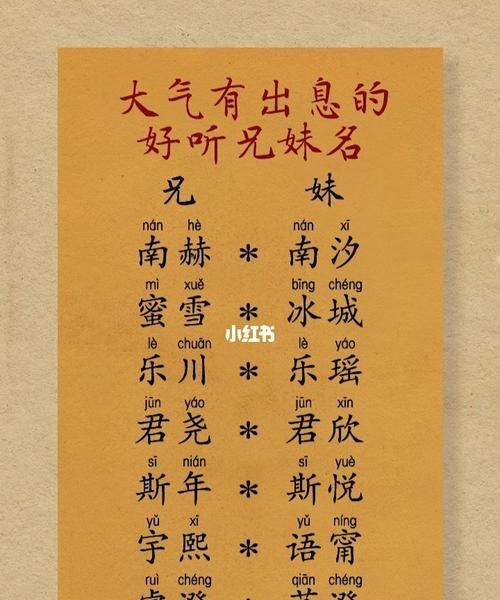 大气有出息的
好听兄妹名
兄 妹
nán hè nán xī
南赫 * 南汐
mì xuě bīng chéng
蜜雪 * 冰城
小红书
lè chuān lè yáo
乐川 * 乐瑶
jūn yáo jūn xīn
君尧 * 君欣
sī nián sī yuè
斯年 * 斯悦
yǔ xī yǔ níng
宇熙 * 语甯
ruì chéng qiān chéng